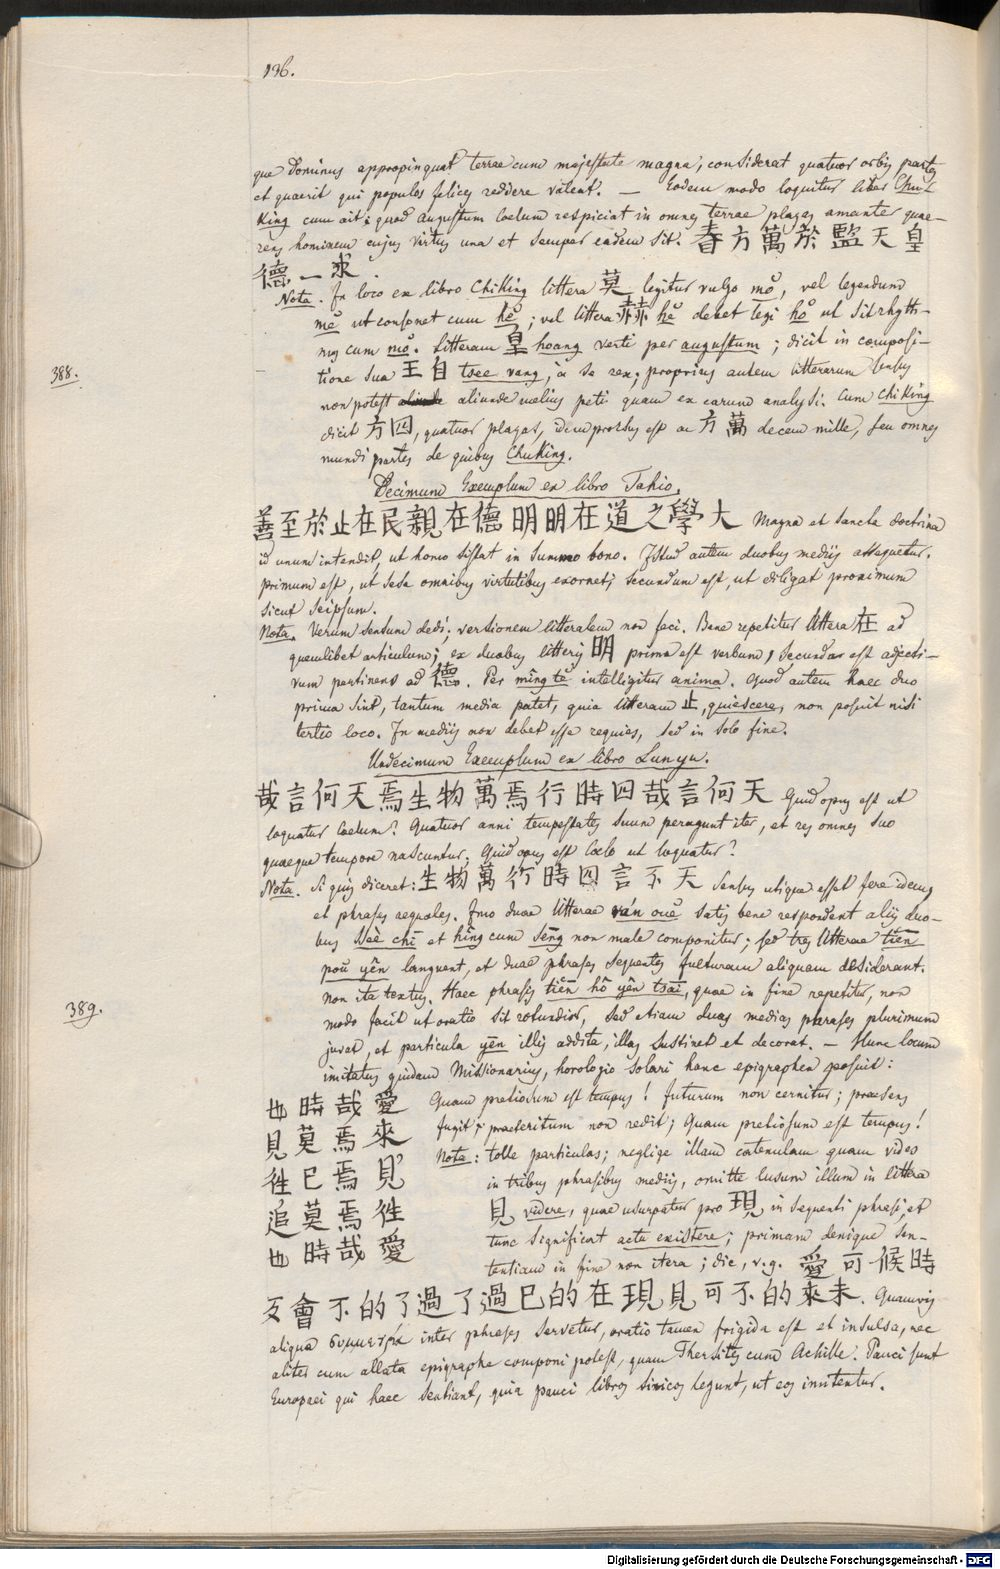 196.
que Dominus appropinquat terrae cum majestate magna, considerat quatuor orbis partes
et quaerit qui populos felices reddere valeat. — Eodem modo loquitur liber Chu
King cum ait: quod augustum coelum respiciat in omnes terrae plagas amanter quae-
rens hominem cujus virtus una et semper eadem sit. 春方萬於監天皇
德一求.
Nota. In loco ex libro ChiKing littera 莫 legitur vulgo mŏ, vel legendum
mĕ ut consonet cum hĕ; vel littera 赫 hĕ debet legi hŏ ut sit rhyth-
mus cum mŏ. Litteram 皇 hoang verti per augustum; dicit in composi-
388.
tione sua 王自 tsee vang, a se rex; proprius autem litterarum sensus
non potest aliunde melius peti quam ex earum analysi. Cum ChiKing
dicit 方四, quatuor plagas, idem prorsus est ac 方萬 decem mille, seu omnes
mundi partes de quibus ChuKing.
Decimum Exemplum ex libro Tahio.
善至於止在民親在德明明在道之學大 Magna et sancta doctrina
id unum intendit, ut homo sistat in summo bono. Istud autem duobus mediis assequetur.
primum est, ut sese omnibus virtutibus exornet; secundum est, ut diligat proximum
sicut seipsum.
Nota. Verum sensum dedi, versionem litteralem non feci. Bene repetitur littera 在 ad
quemlibet articulum; ex duabus litteris 明 prima est verbum, secunda est adjecti-
vum pertinens ad 德. Per mîng tĕ intelligitur anima. Quod autem haec duo
prima sint, tantum media patet, quia litteram 止, quiescere, non posuit nisi
tertio loco. In mediis non debet esse requies, sed in solo fine.
Undecimum Exemplum ex libro Lunyu.
哉言何天焉生物萬焉行時四哉言何天 Quid opus est ut
loquatur Coelum? Quatuor anni tempestates suum peragunt iter, et res omnes suo
quaeque tempore nascuntur. Quid opus est Coelo ut loquatur?
Nota. Si quis diceret: 生物萬行時四言不天 Sensus utique esset fere idem
et phrases aequales. Imo duae litterae ván ouĕ satis bene respondent aliis duo-
bus sseè chî et hîng cum sēng non male componitur; sed tres litterae tiēn
poŭ yên languent, et duae phrases sequentes fulturam aliquam desiderant.
Non ita textus. Haec phrasis tiēn hô yên tsāi, quae in fine repetitur, non
389.
modo facit ut oratio sit rotundior, sed etiam duas medias phrases plurimum
juvat, et particula yên illis addita, illas sustinet et decorat. — Hunc locum
imitatus quidam Missionarius, horologio solari hanc epigraphen posuit:
也時哉愛 Quam pretiosum est tempus! futurum non cernitur; praesens
見莫焉來 fugit; praeteritum non redit; Quam pretiosum est tempus!
Nota: tolle particulas; neglige illam catenulam quam vides
徃已焉見 in tribus phrasibus mediis, omitte lusum illum in littera
追莫焉徃 見 videre, quae usurpatur pro 現 in sequenti phrasi, et
tunc significat actu existere; primam denique sen-
也時哉愛 tentiam in fine non itera; dic, v.g. 愛可候時
反會不的了過了過已的在現見可不的來未. Quamvis
aliqua συμμετρία inter phrases servetur, oratio tamen frigida est et insulsa, nec
aliter cum allata epigraphe componi potest, quam Thersites cum Achille. Pauci sunt
Europaei qui haec sentiant, quia pauci libros sinicos legunt, ut eos imitentur.
Digitalisierung gefördert durch die Deutsche Forschungsgemeinschaft - DFG